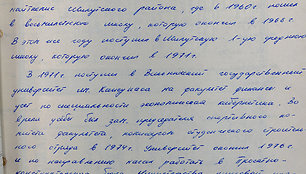 района, где в 1960г. пошел
в восьмилетнюю школу, которую окончил в 1968г.
В этом же году поступил в 1-ую среднюю
школу, которую окончил в 1971г.
В 1971г. поступил в Вильнюсский государственный
университет им. Капсукаса на факультет финансы и
учет по специальности экономическая кибернетика. Во
время учебы был зам. председателя спортивного ко-
митета факультета, командиром студенческого строитель
отряда в 1974г. Университет окончил 1976г.
и по направлению начал работать в Проектно-